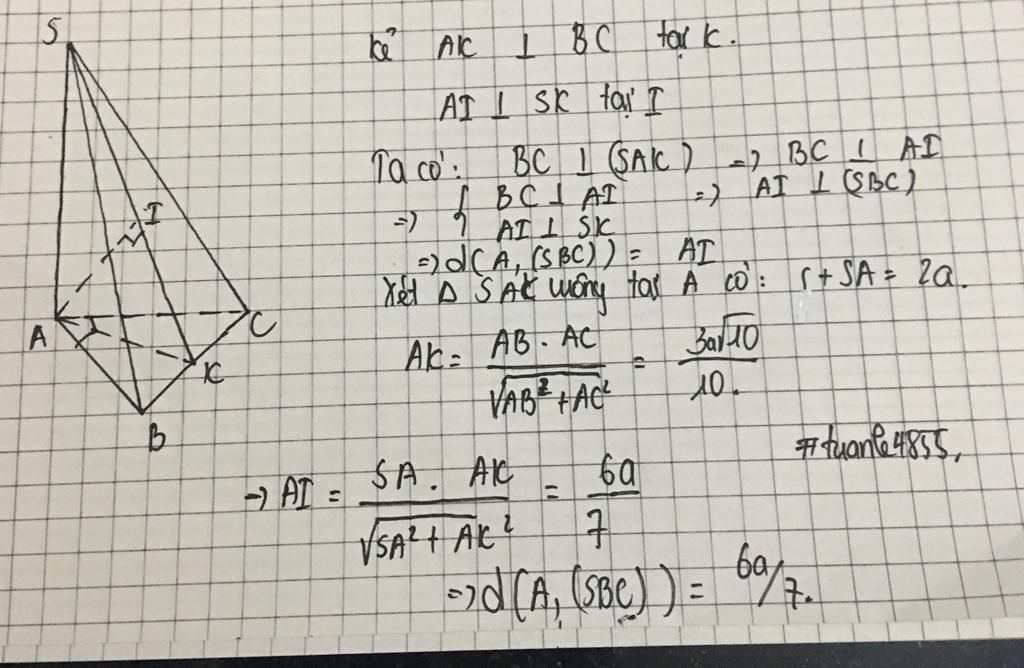 S
I
A
C
K
B
kẻ AK ⊥ BC tại K.
AI ⊥ SK tại I
Ta có: BC ⊥ (SAK) => BC ⊥ AI
=> { BC ⊥ AI => AI ⊥ (SBC)
AI ⊥ SK
=> d(A, (SBC)) = AI
Xét Δ SAK vuông tại A có: + SA = 2a.
AK = AB . AC / √AB² + AC² = 3a√10 / 10.
#tuanle4855,
→ AI = SA . AK / √SA² + AK² = 6a / 7
=> d(A, (SBC)) = 6a/7.